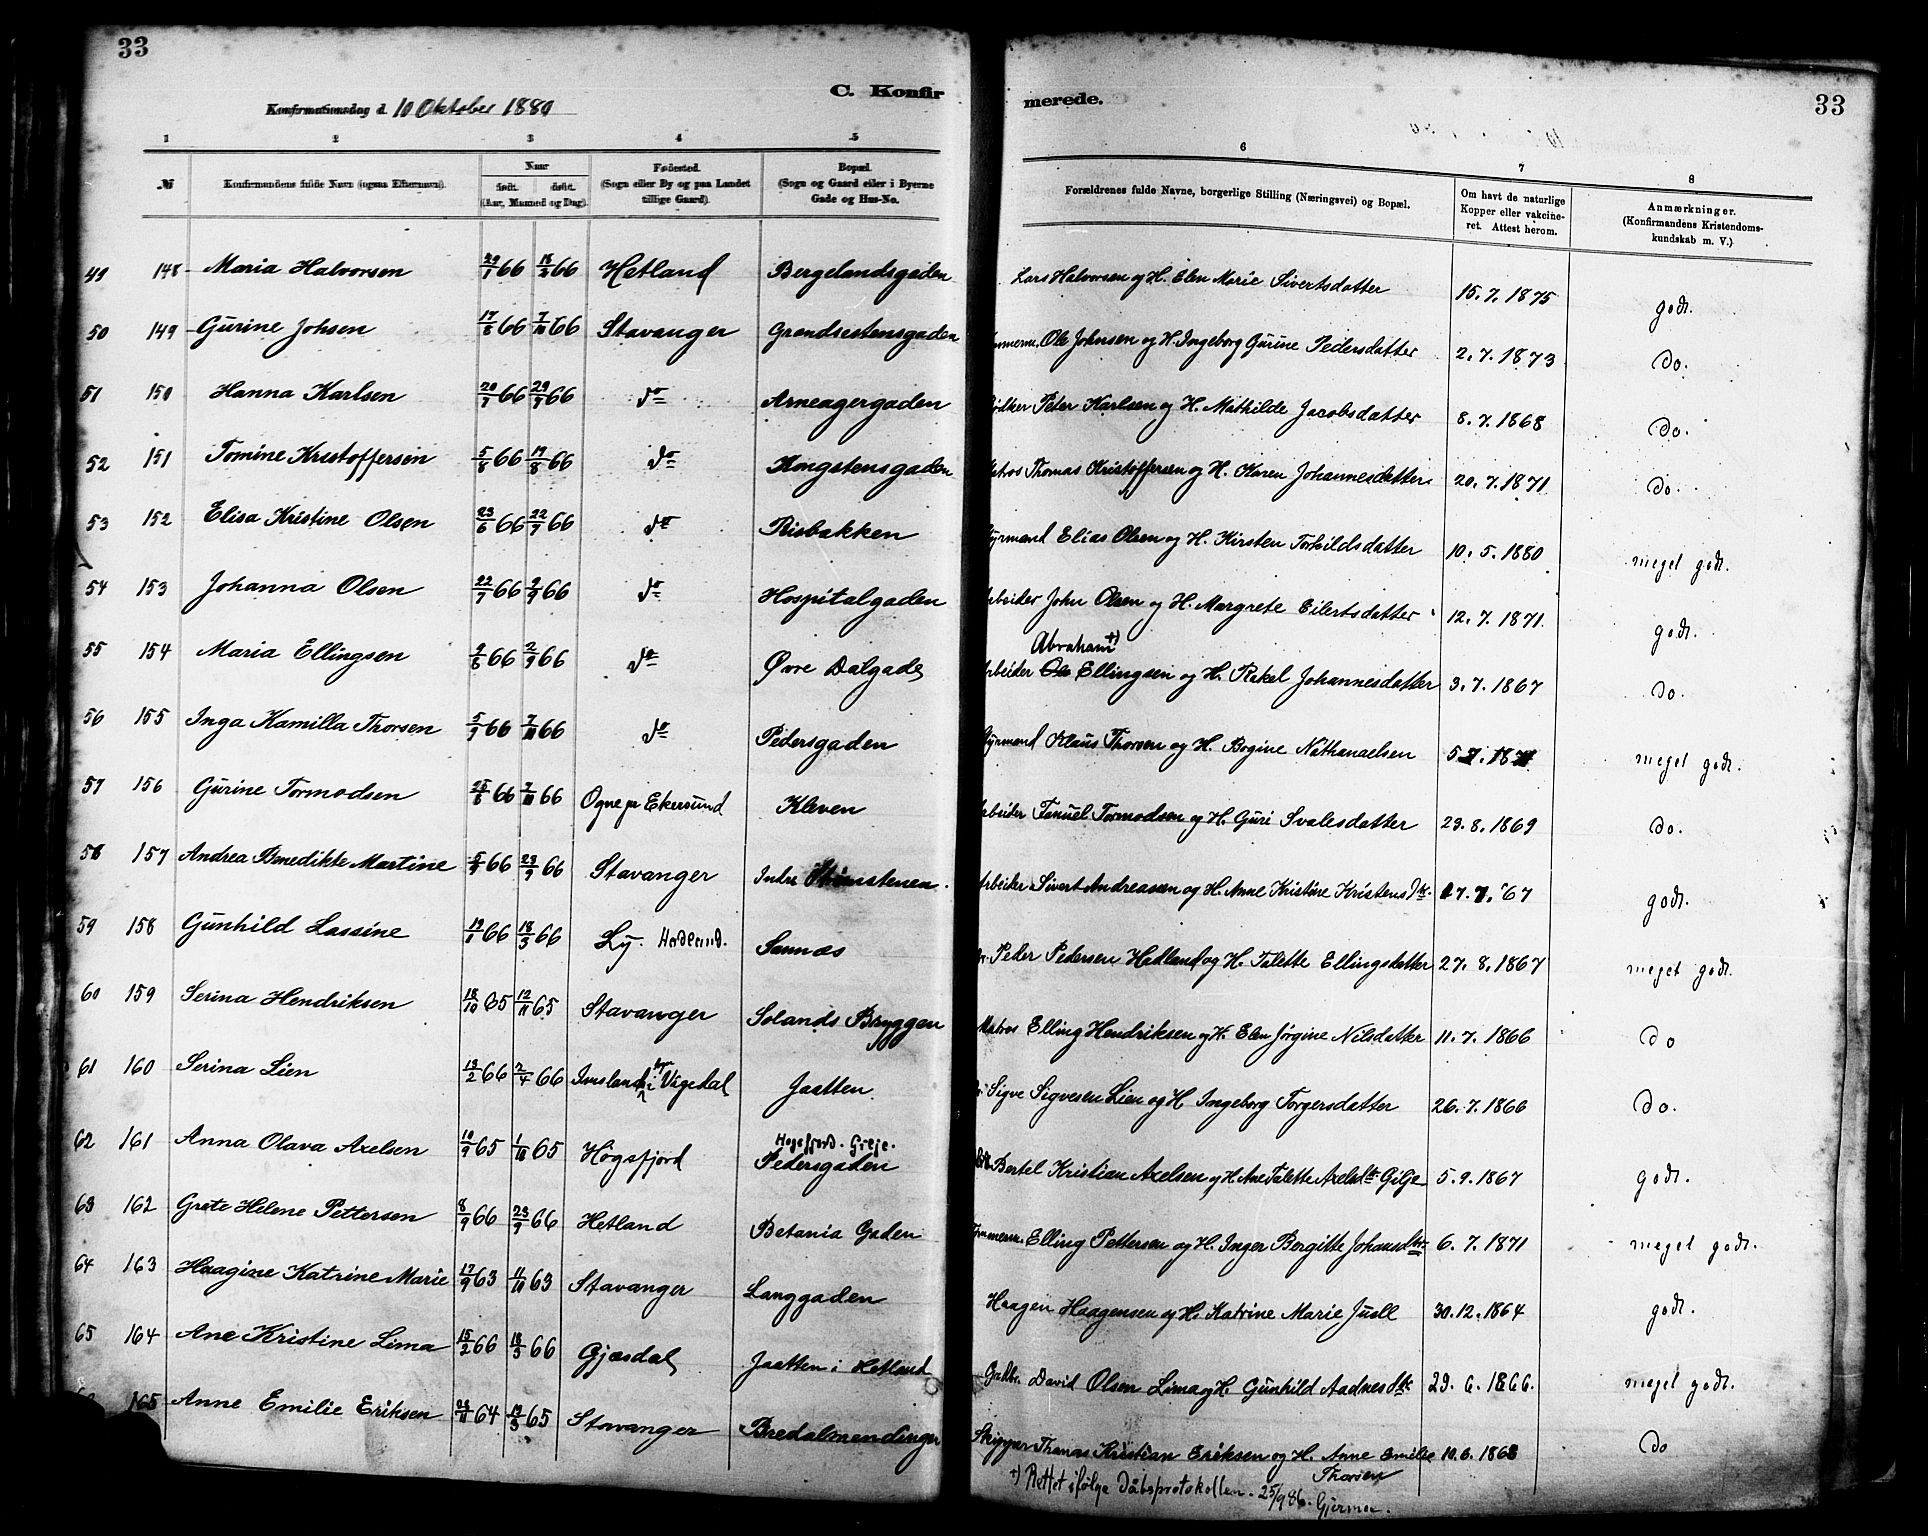 33
C. Konfir
Konfirmationsdag d. 10 Oktober 1880
merede.
33
1 2 3 4 5
6 7 8
№ Konfirmandens fulde Navn (ogsaa Efternavn). Naar født. døbt. (Aar, Maaned og Dag). Fødested. (Sogn eller By og paa Landet tillige Gaard). Bopæl. (Sogn og Gaard eller i Byerne Gade og Hus-No.
Forældrenes fulde Navne, borgerlige Stilling (Næringsvei) og Bopæl. Om havt de naturlige Kopper eller vakcineret. Attest herom. Anmærkninger. (Konfirmandens Kristendomskundskab m. V.)
49 148 Maria Halvorsen 29/1 66 18/3 66 Hetland Bergelandsgaden Lars Halvorsen og H. Elen Marie Sivertsdatter 15.7.1875 godt.
50 149 Gurine Johsen 17/8 66 7/10 66 Stavanger Grandsestensgaden Ole Johnsen og H. Ingeborg Gurine Pedersdatter 2.7.1873 do.
51 150 Hanna Karlsen 20/7 66 29/7 66 do Arneagergaden Peter Karlsen og H. Mathilde Jacobsdatter 8.7.1868 do.
52 151 Tomine Kristoffersen 5/8 66 19/8 66 do Kongstensgaden Thomas Kristoffersen og H. Karen Johannesdatter 20.7.1871 do.
53 152 Elisa Kristine Olsen 23/6 66 22/7 66 do Risbakken Elias Olsen og H. Kirsten Torkildsdatter 10.5.1880 meget godt.
54 153 Johanna Olsen 22/7 66 2/9 66 do Hospitalgaden John Olsen og H. Margrete Eilertsdatter 12.7.1871 godt.
Abraham +)
55 154 Maria Ellingsen 2/6 66 2/9 66 do Øvre Dalgade Arbeider Ole Ellingsen og H. Rakel Johannesdatter 3.7.1867 do.
56 155 Inga Kamilla Thorsen 5/7 66 7/10 66 do Pedersgaden Klaus Thorsen og H. Bogine Nathanaelsen meget godt.
57 156 Gurine Tormodsen 25/8 66 7/10 66 Ogne pr Ekersund Kleven Arbeider Tanuel Tormodsen og H. Guri Svalesdatter 23.8.1869 do.
58 157 Andrea Benedikte Martine 66 23/9 66 Stavanger Indre Arbeider Sivert Andreassen og H. Anne Kristine Kristens dtr. 17.7.67 godt.
59 158 Gunhild Lassine 19/1 66 18/3 66 Ly. Hadland. Sannæs Peder Pedersen Hadland og H. Talette Ellingsdatter 27.8.1867 meget godt.
60 159 Serina Hendriksen 18/10 65 12/11 65 Stavanger Solands Bryggen Matros Elling Hendriksen og H. Elen Jørgine Nilsdatter 11.7.1866 do
61 160 Serina Lien 13/2 66 2/4 66 Imsland i Vigedal Jaatten Sigve Sigvesen Lien og H Ingeborg Torgersdatter 26.7.1866 do.
Høgsfjord. Gilje.
62 161 Anna Olava Axelsen 10/9 65 1/10 65 Høgsfjord Pedersgaden Bertel Kristian Axelsen og H. Ane Talette Axelsdtr Gilje 5.9.1867 godt.
63 162 Grete Helene Pettersen 8/9 66 23/9 66 Hetland Betania Gaden Elling Pettersen og H. Inger Bergitte Johansdtr 6.7.1871 meget godt.
64 163 Haagine Katrine Marie 17/9 63 11/10 63 Stavanger Langgaden Haagen Haagensen og H. Katrine Marie Juell 30.12.1864 godt.
65 164 Ane Kristine Lima 15/2 66 18/3 66 Gjæsdal Jaatten i Hetland Gdbr. David Olsen Lima og H. Gunhild Aadnesdtr 29.6.1866. meget godt.
165 Anne Emilie Eriksen 64 65 Stavanger Bredalmendingen Skipper Thomas Kristian Eriksen og H. Anne Emilie Thorsen 10.6.1868 do
+) Rettet ifølge Dåbsprotokollen. 25/9 86. Gjermoe.